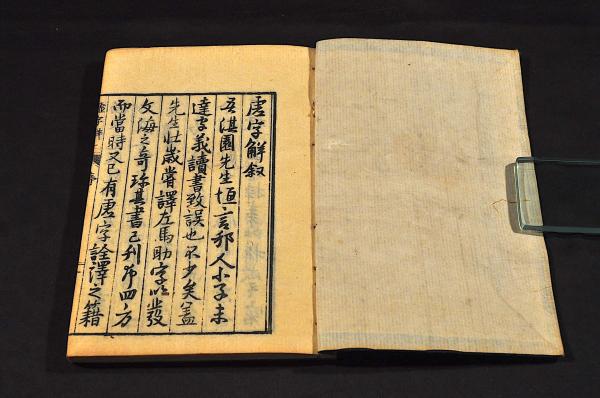 虗字解叙
吾淇園先生恒言邦人小子未
達字義讀書致誤也不少矣盖
先生壮歳甞譯左馬助字以發
文海之奇珎其書已刊布四方
而當時又已有虗字詮譯之籍